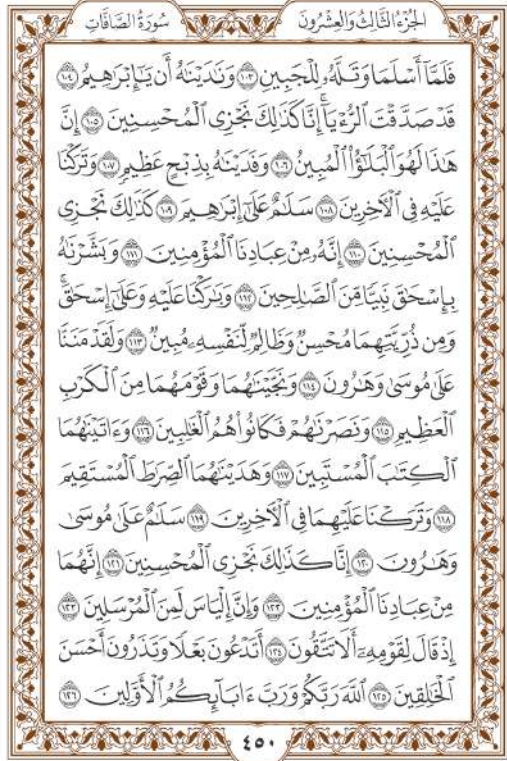 الجُزْءُ الثَّالِثُ وَالعِشْرُونَ
سُورَةُ الصَّافَّاتِ
فَلَمَّآ أَسْلَمَا وَتَلَّهُۥ لِلْجَبِينِ ١٠٣ وَنَٰدَيْنَٰهُ أَن يَٰٓإِبْرَٰهِيمُ ١٠٤
قَدْ صَدَّقْتَ ٱلرُّءْيَآۚ إِنَّا كَذَٰلِكَ نَجْزِى ٱلْمُحْسِنِينَ ١٠٥ إِنَّ
هَٰذَا لَهُوَ ٱلْبَلَٰٓؤُا۟ ٱلْمُبِينُ ١٠٦ وَفَدَيْنَٰهُ بِذِبْحٍ عَظِيمٍ ١٠٧ وَتَرَكْنَا
عَلَيْهِ فِى ٱلْءَاخِرِينَ ١٠٨ سَلَٰمٌ عَلَىٰٓ إِبْرَٰهِيمَ ١٠٩ كَذَٰلِكَ نَجْزِى
ٱلْمُحْسِنِينَ ١١٠ إِنَّهُۥ مِنْ عِبَادِنَا ٱلْمُؤْمِنِينَ ١١١ وَبَشَّرْنَٰهُ
بِإِسْحَٰقَ نَبِيًّا مِّنَ ٱلصَّٰلِحِينَ ١١٢ وَبَٰرَكْنَا عَلَيْهِ وَعَلَىٰٓ إِسْحَٰقَۚ
وَمِن ذُرِّيَّتِهِمَا مُحْسِنٌ وَظَالِمٌ لِّنَفْسِهِۦ مُبِينٌ ١١٣ وَلَقَدْ مَنَنَّا
عَلَىٰ مُوسَىٰ وَهَٰرُونَ ١١٤ وَنَجَّيْنَٰهُمَا وَقَوْمَهُمَا مِنَ ٱلْكَرْبِ
ٱلْعَظِيمِ ١١٥ وَنَصَرْنَٰهُمْ فَكَانُوا۟ هُمُ ٱلْغَٰلِبِينَ ١١٦ وَءَاتَيْنَٰهُمَا
ٱلْكِتَٰبَ ٱلْمُسْتَبِينَ ١١٧ وَهَدَيْنَٰهُمَا ٱلصِّرَٰطَ ٱلْمُسْتَقِيمَ
١١٨ وَتَرَكْنَا عَلَيْهِمَا فِى ٱلْءَاخِرِينَ ١١٩ سَلَٰمٌ عَلَىٰ مُوسَىٰ
وَهَٰرُونَ ١٢٠ إِنَّا كَذَٰلِكَ نَجْزِى ٱلْمُحْسِنِينَ ١٢١ إِنَّهُمَا
مِنْ عِبَادِنَا ٱلْمُؤْمِنِينَ ١٢٢ وَإِنَّ إِلْيَاسَ لَمِنَ ٱلْمُرْسَلِينَ ١٢٣
إِذْ قَالَ لِقَوْمِهِۦٓ أَلَا تَتَّقُونَ ١٢٤ أَتَدْعُونَ بَعْلًا وَتَذَرُونَ أَحْسَنَ
ٱلْخَٰلِقِينَ ١٢٥ ٱللَّهَ رَبَّكُمْ وَرَبَّ ءَابَآئِكُمُ ٱلْأَوَّلِينَ ١٢٦
٤٥٠